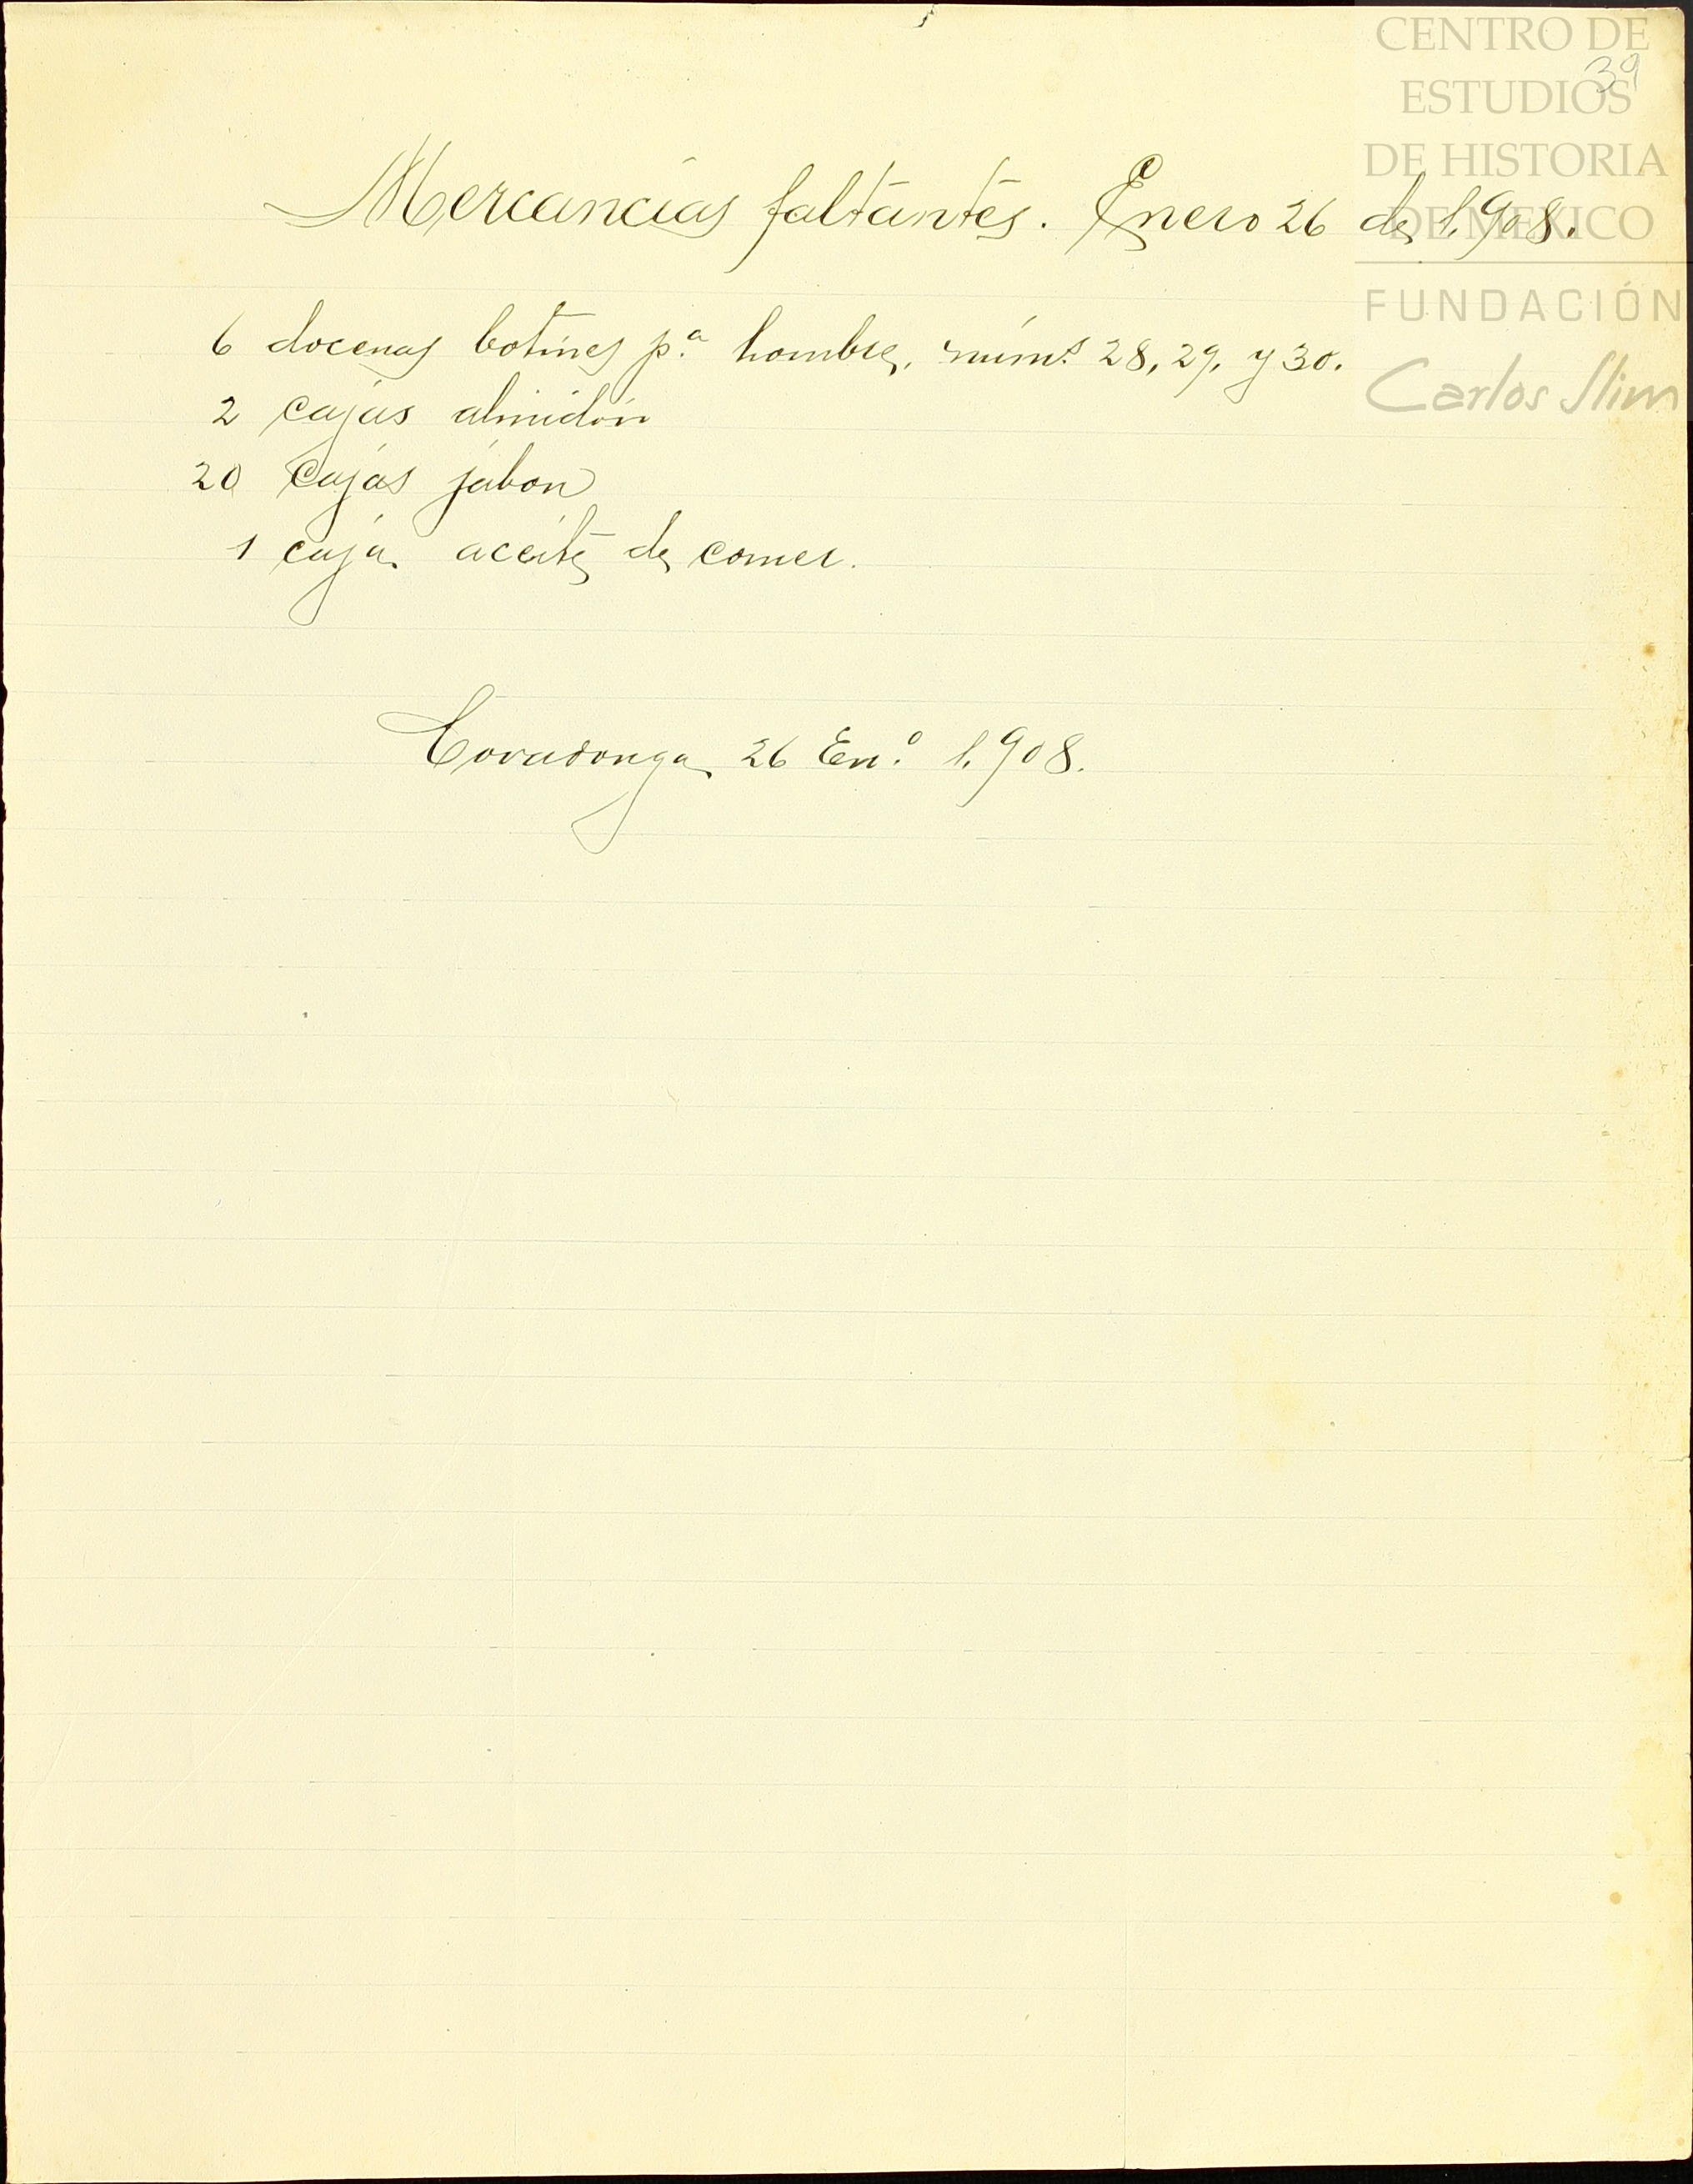 CENTRO DE
39
ESTUDIOS
DE HISTORIA
DE MEXICO
FUNDACIÓN
Carlos Slim
Mercancías faltantes. Enero 26 de 1.908.
6 docenas botines p.ª hombre, núm.s 28, 29, y 30.
2 cajas almidón
20 cajas jabon
1 caja aceite de comer.
Covadonga 26 En.º 1.908.